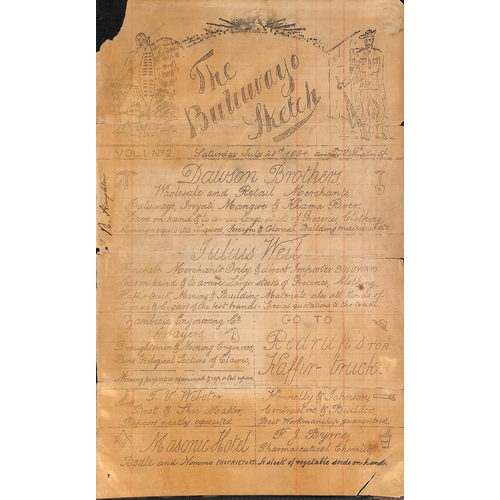 The
Buluwayo
Sketch
VOL I. No 2. Saturday July 28th 1894
Dawson Brothers
Wholesale and Retail Merchants
Buluwayo, Inyati Mangwe & Khama River
Have on hand & to arrive large stocks of Groceries Clothing
Mining requisites Liquors, Foreign & Colonial Building material &c.
Julius Weil
Wholesale Merchants Only & direct Importer BULUWAYO
Has on hand & to arrive Large stocks of Groceries, Clothing,
Kaffir truck, Mining & Building Materials, also all kinds of
Liquors & Cigars of the best brands. Special quotations to the trade
Zambesia Engineering Co.
Assayers
Draughtsmen & Mining Engineers
Plans Geological Sections of Claims,
Mining properties examined & reported upon
GO TO
Redrup's FOR
Kaffir-truck.
T. V. Webster
Boot & Shoe Maker,
Repairs neatly executed
Kennelly & Johnson,
Contractors & Builders
Best Workmanship guaranteed
Masonic Hotel
Bodle and Nimmo PROPRIETORS
F. J. Byrne
Pharmaceutical Chemist
A stock of vegetable seeds on hand.